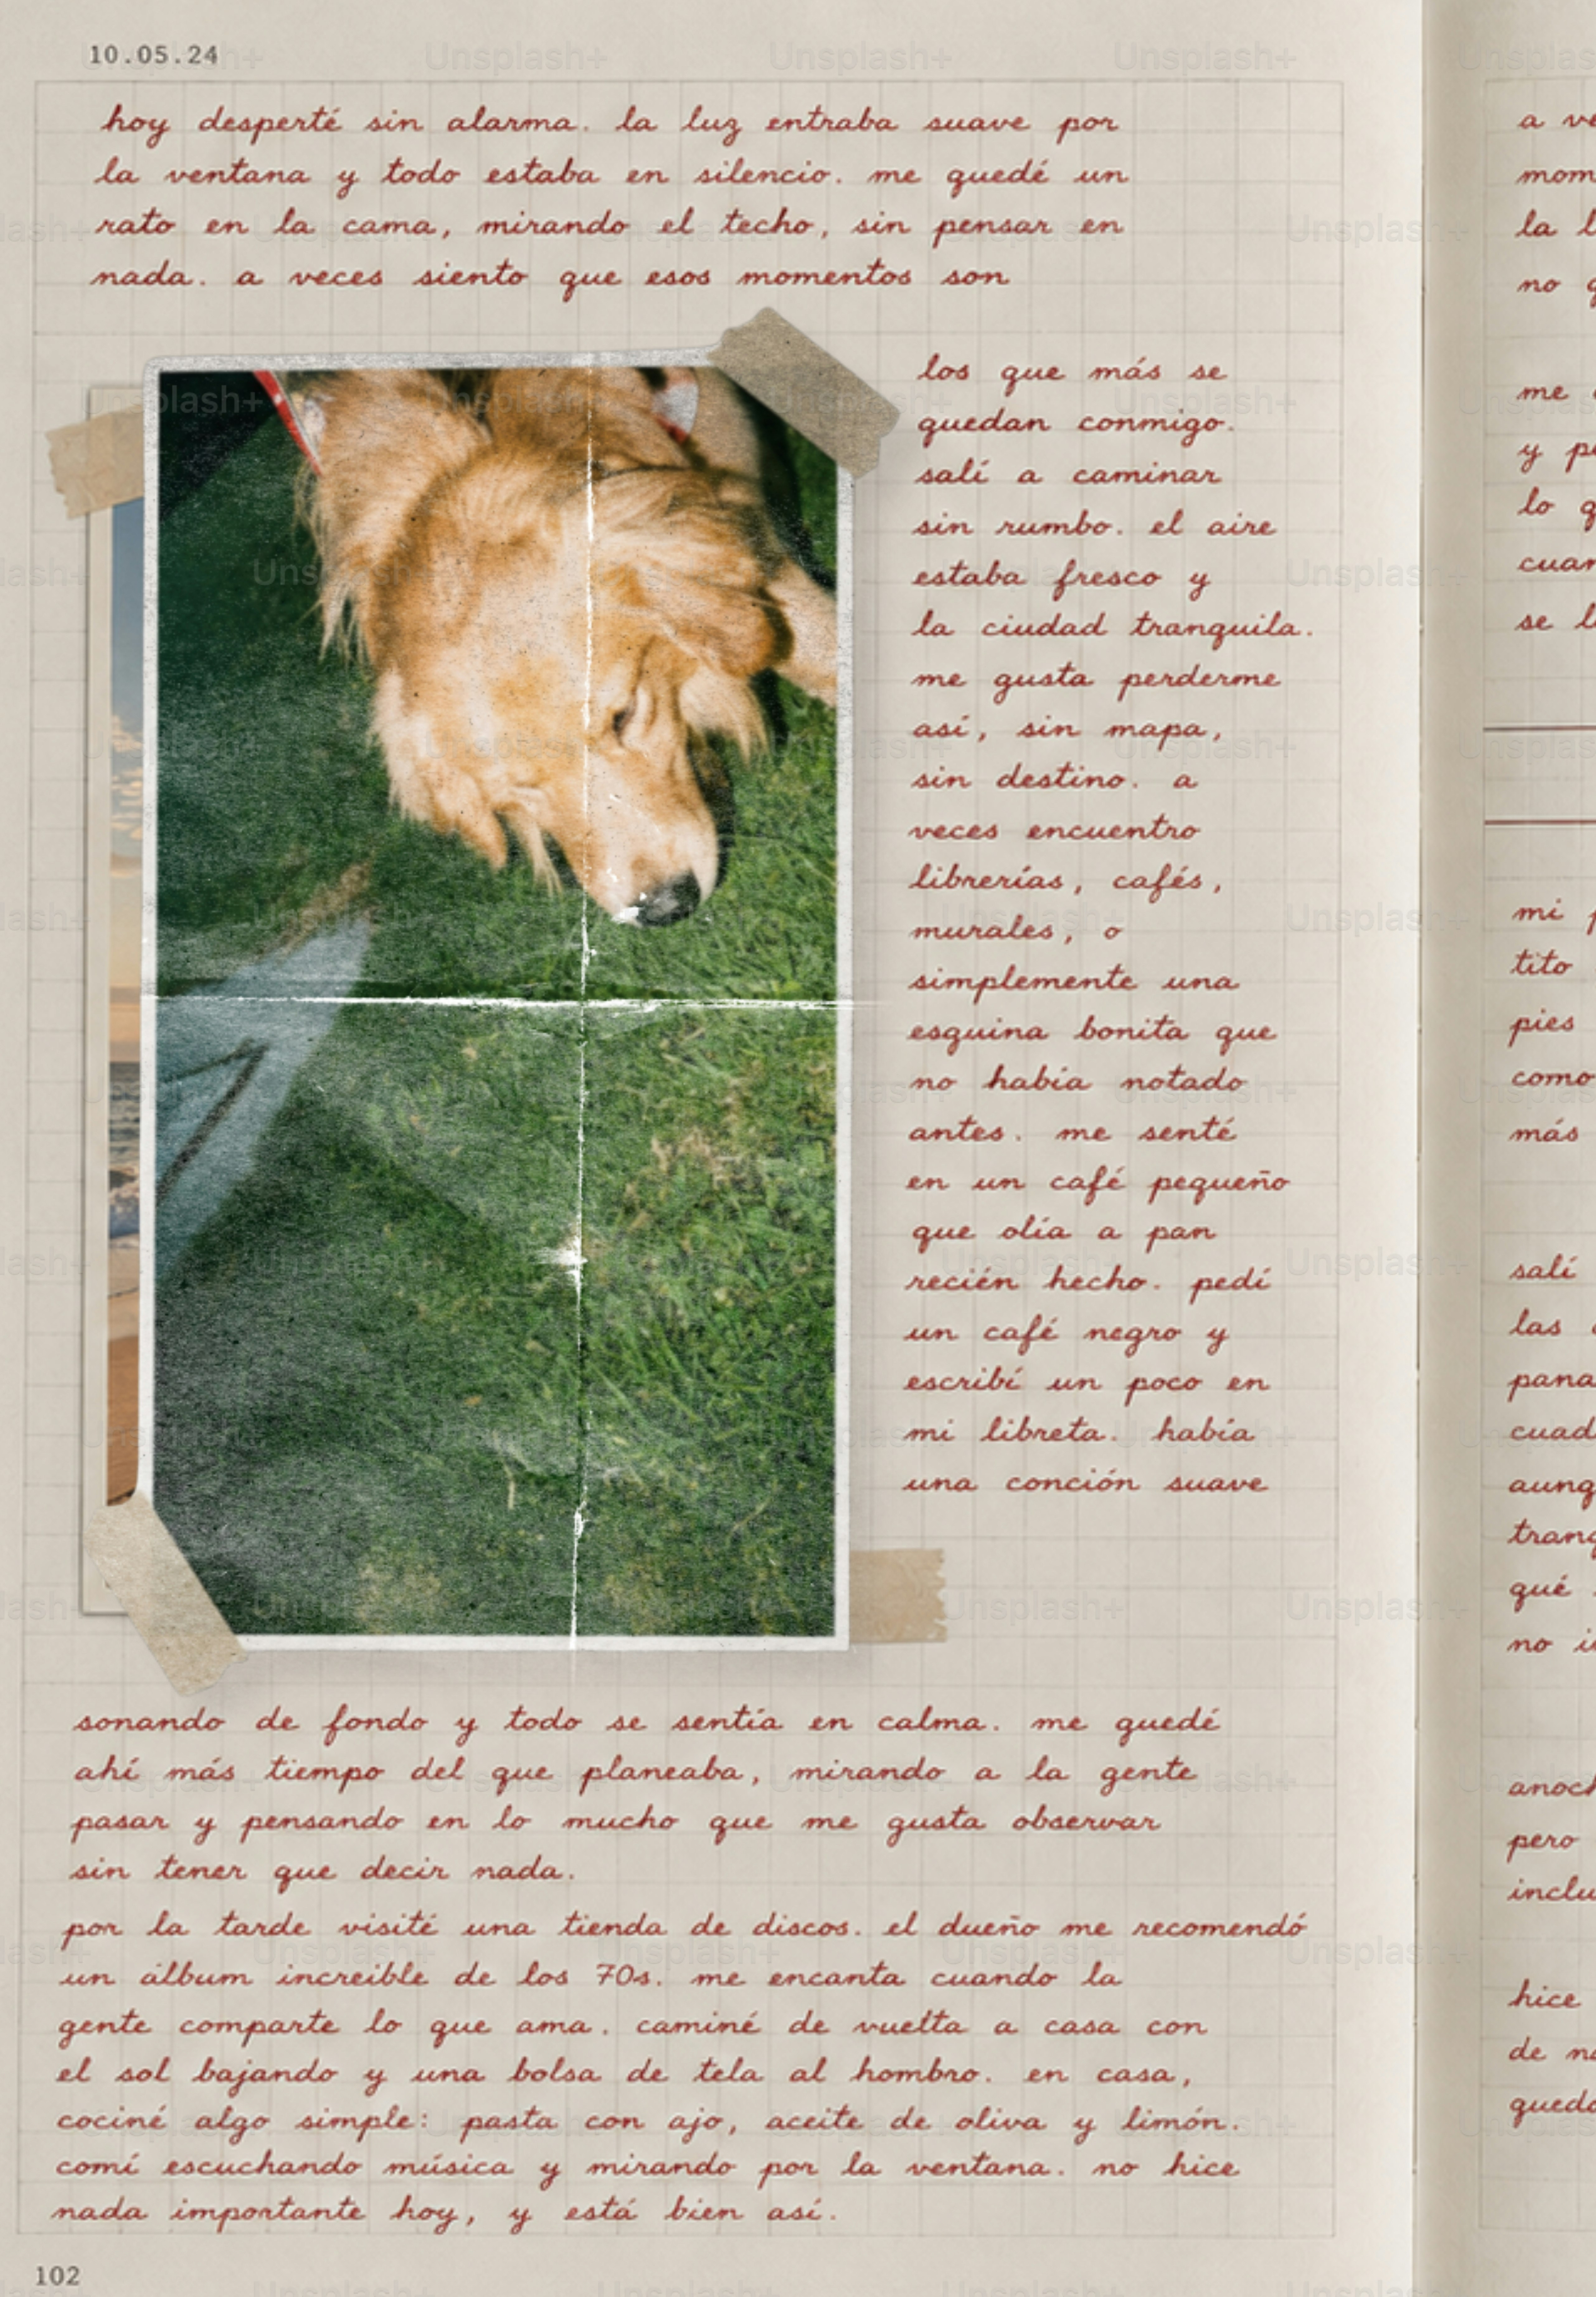 10.05.24
hoy desperté sin alarma. la luz entraba suave por
la ventana y todo estaba en silencio. me quedé un
rato en la cama, mirando el techo, sin pensar en
nada. a veces siento que esos momentos son
los que más se
quedan conmigo.
salí a caminar
sin rumbo. el aire
estaba fresco y
la ciudad tranquila.
me gusta perderme
así, sin mapa,
sin destino. a
veces encuentro
librerías, cafés,
murales, o
simplemente una
esquina bonita que
no había notado
antes. me senté
en un café pequeño
que olía a pan
recién hecho. pedí
un café negro y
escribí un poco en
mi libreta. había
una conción suave
sonando de fondo y todo se sentía en calma. me quedé
ahí más tiempo del que planeaba, mirando a la gente
pasar y pensando en lo mucho que me gusta observar
sin tener que decir nada.
por la tarde visité una tienda de discos. el dueño me recomendó
un álbum increible de los 70s. me encanta cuando la
gente comparte lo que ama. caminé de vuelta a casa con
el sol bajando y una bolsa de tela al hombro. en casa,
cociné algo simple: pasta con ajo, aceite de oliva y limón.
comí escuchando música y mirando por la ventana. no hice
nada importante hoy, y está bien así.
102
a
la
no
me
y
lo
se
mi
tito
pies
como
más
salí
las
qué
no
pero
hice
de
Unsplash+